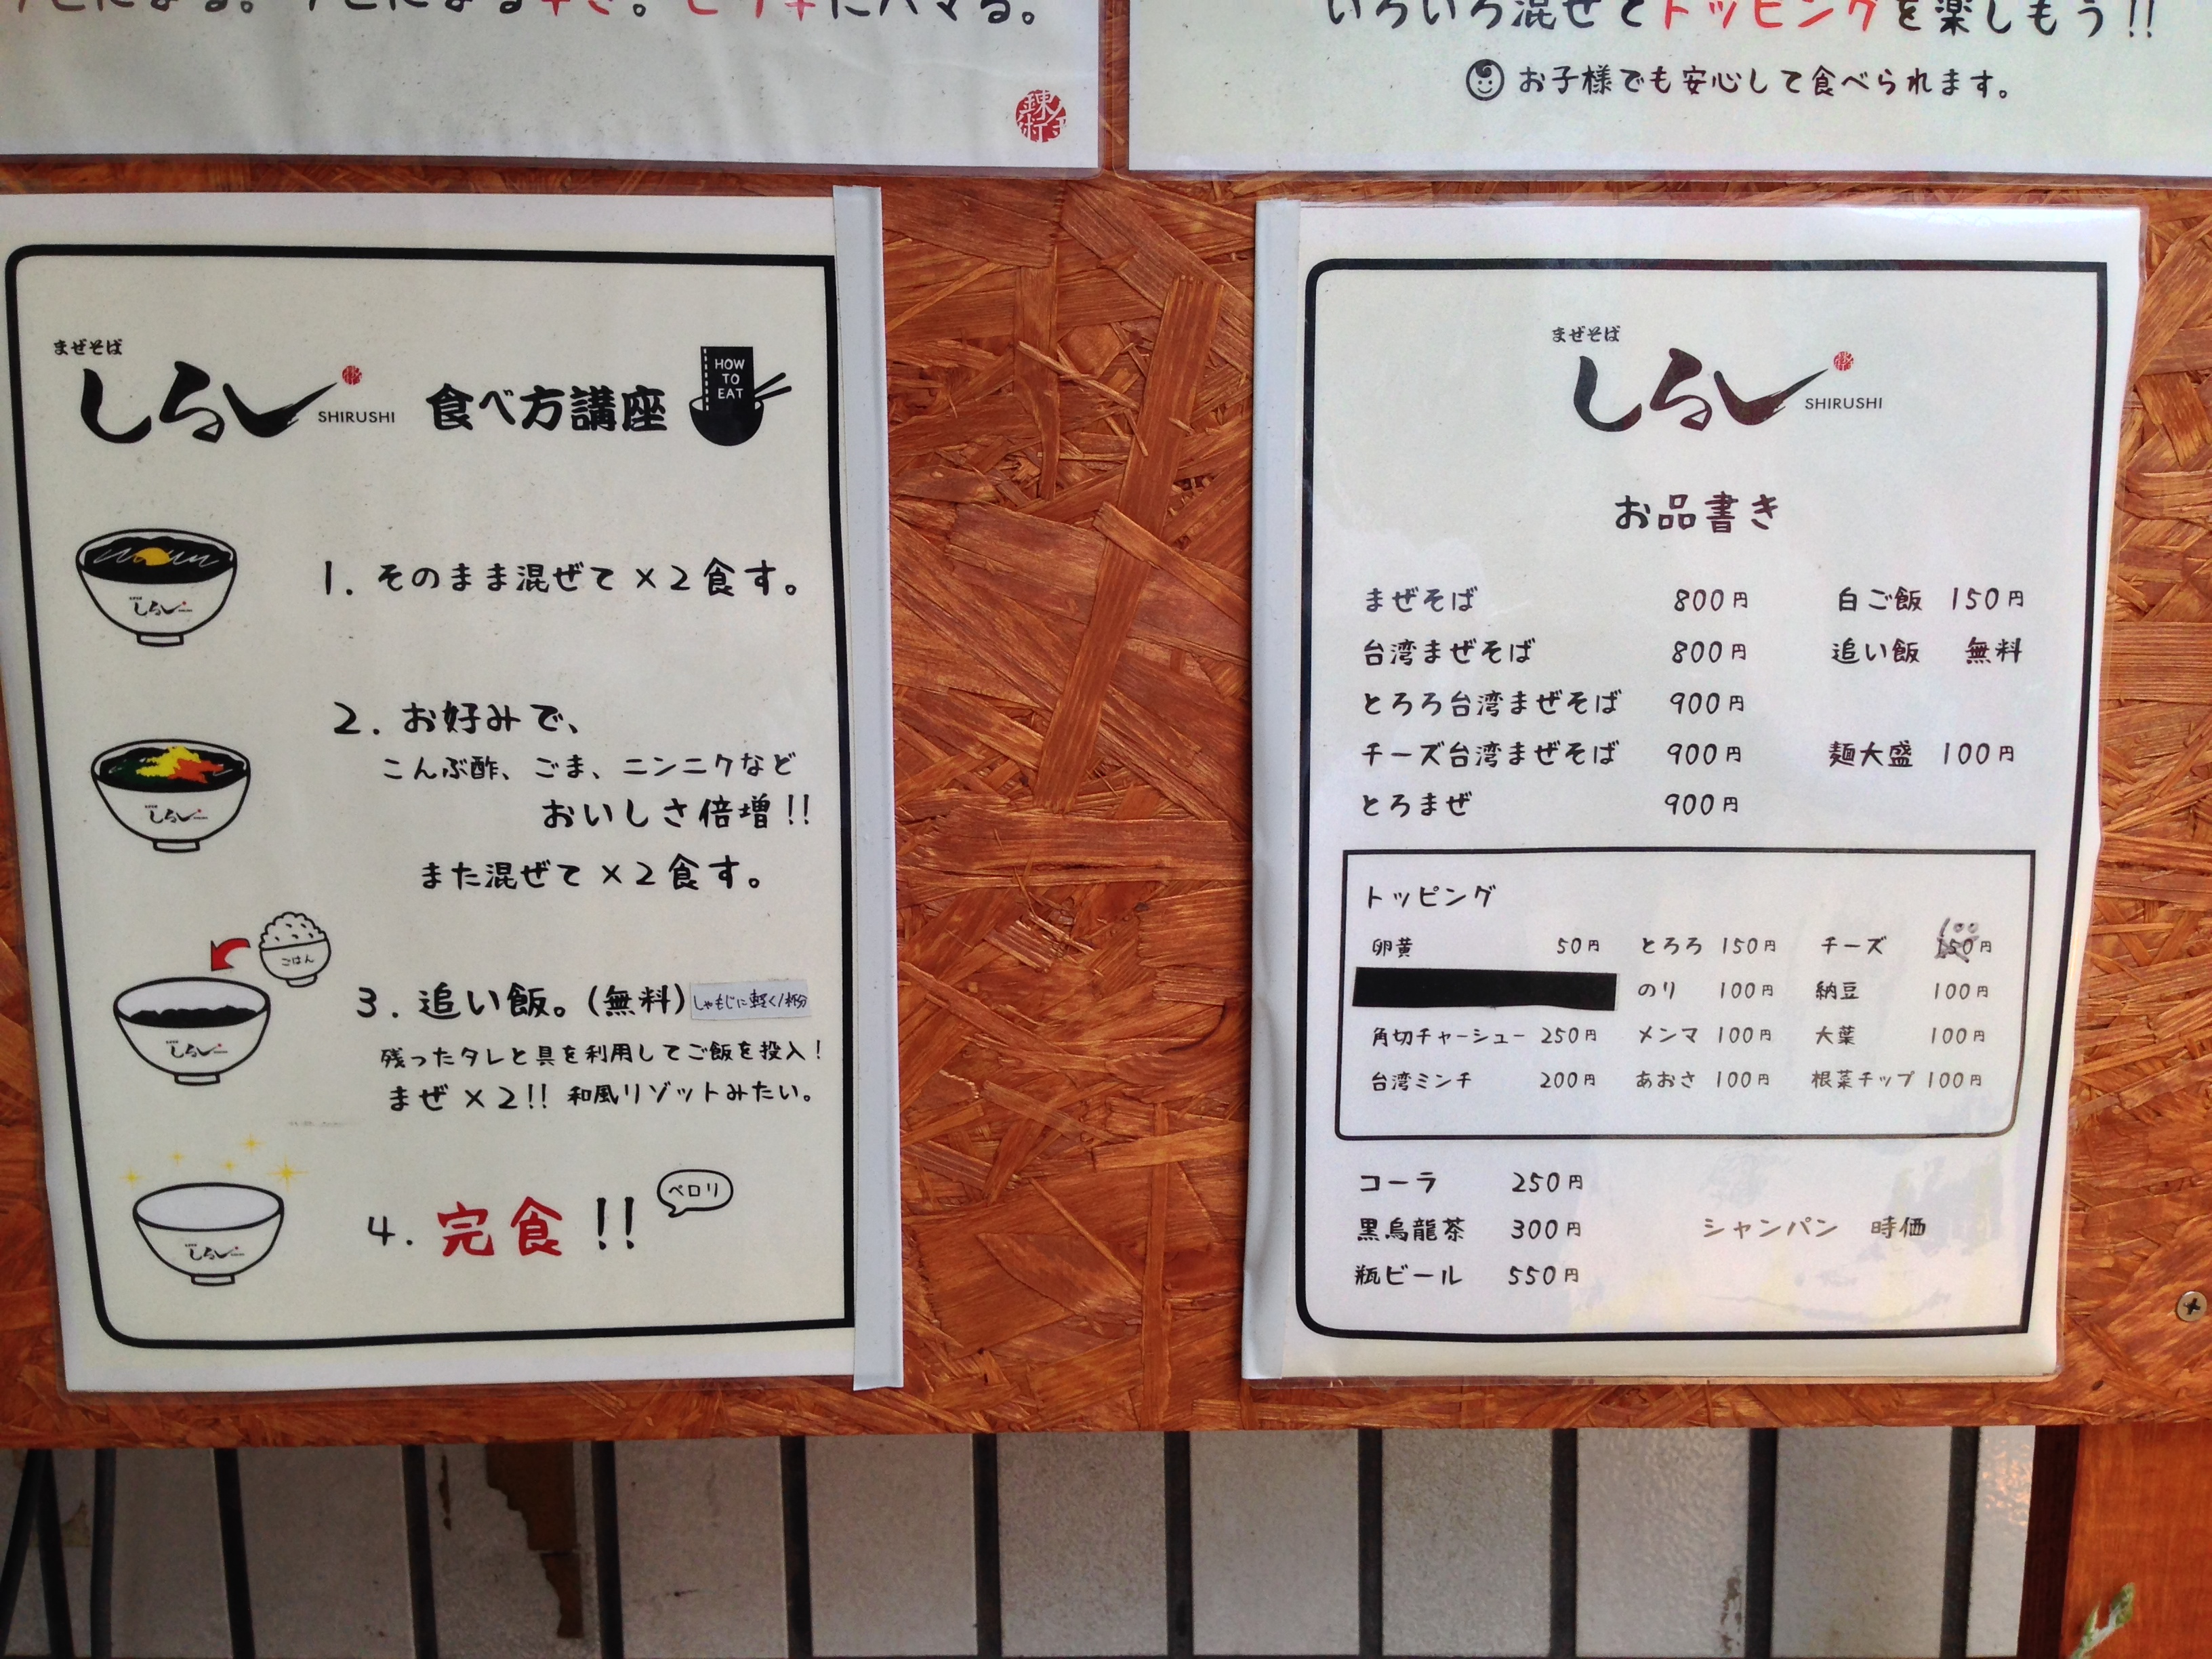 いろいろ混ぜとトッピングを楽しもう!!
お子様でも安心して食べられます。
まぜそば
しるし SHIRUSHI 食べ方講座
HOW
TO
EAT
1. そのまま混ぜて×2食す。
2. お好みで、
こんぶ酢、ごま、ニンニクなど
おいしさ倍増!!
また混ぜて×2食す。
ごはん
3. 追い飯。(無料) しゃもじに軽く1杯分
残ったタレと具を利用してご飯を投入!
まぜ×2!! 和風リゾットみたい。
4. 完食!!
ペロリ
しるし
しるし
しるし
しるし
まぜそば
しるし SHIRUSHI
お品書き
まぜそば 800円 白ご飯 150円
台湾まぜそば 800円 追い飯 無料
とろろ台湾まぜそば 900円
チーズ台湾まぜそば 900円 麺大盛 100円
とろまぜ 900円
トッピング
卵黄 50円 とろろ 150円 チーズ 円
のり 100円 納豆 100円
角切チャーシュー 250円 メンマ 100円 大葉 100円
台湾ミンチ 200円 あおさ 100円 根菜チップ 100円
コーラ 250円
黒烏龍茶 300円 シャンパン 時価
瓶ビール 550円